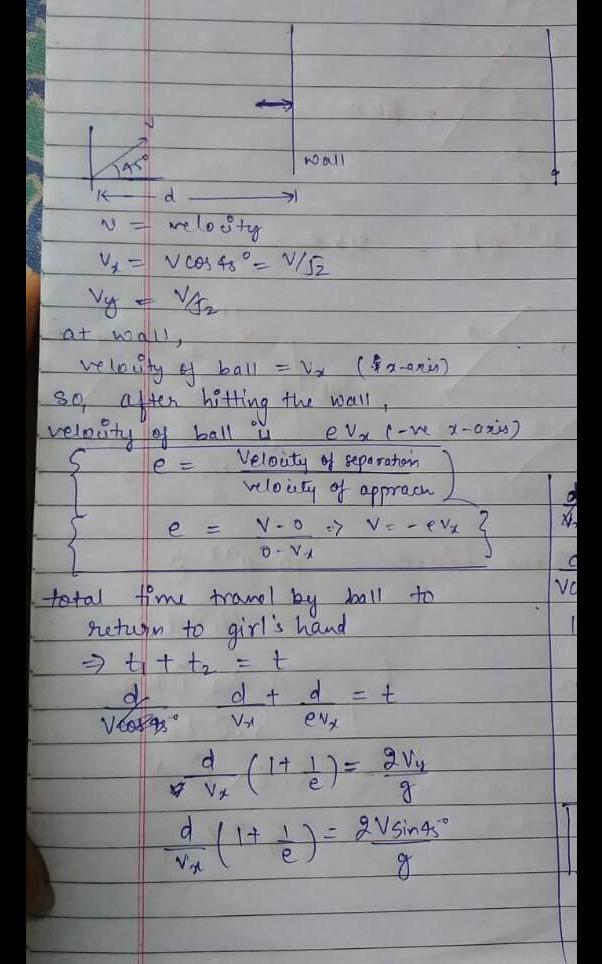 V
45°
wall
d
v = velocity
Vx = V cos 45° = V/√2
Vy = V/√2
at wall,
velocity of ball = Vx ( x-axis)
so, after hitting the wall,
velocity of ball is eVx (-ve x-axis)
e = Velocity of separation / velocity of approach
e = V - 0 / 0 - Vx => V = -eVx
total time travel by ball to
return to girl's hand
⇒ t1 + t2 = t
d / Vcos45° d / Vx + d / eVx = t
d / Vx (1 + 1/e) = 2Vy / g
d / Vx (1 + 1/e) = 2V sin 45° / g